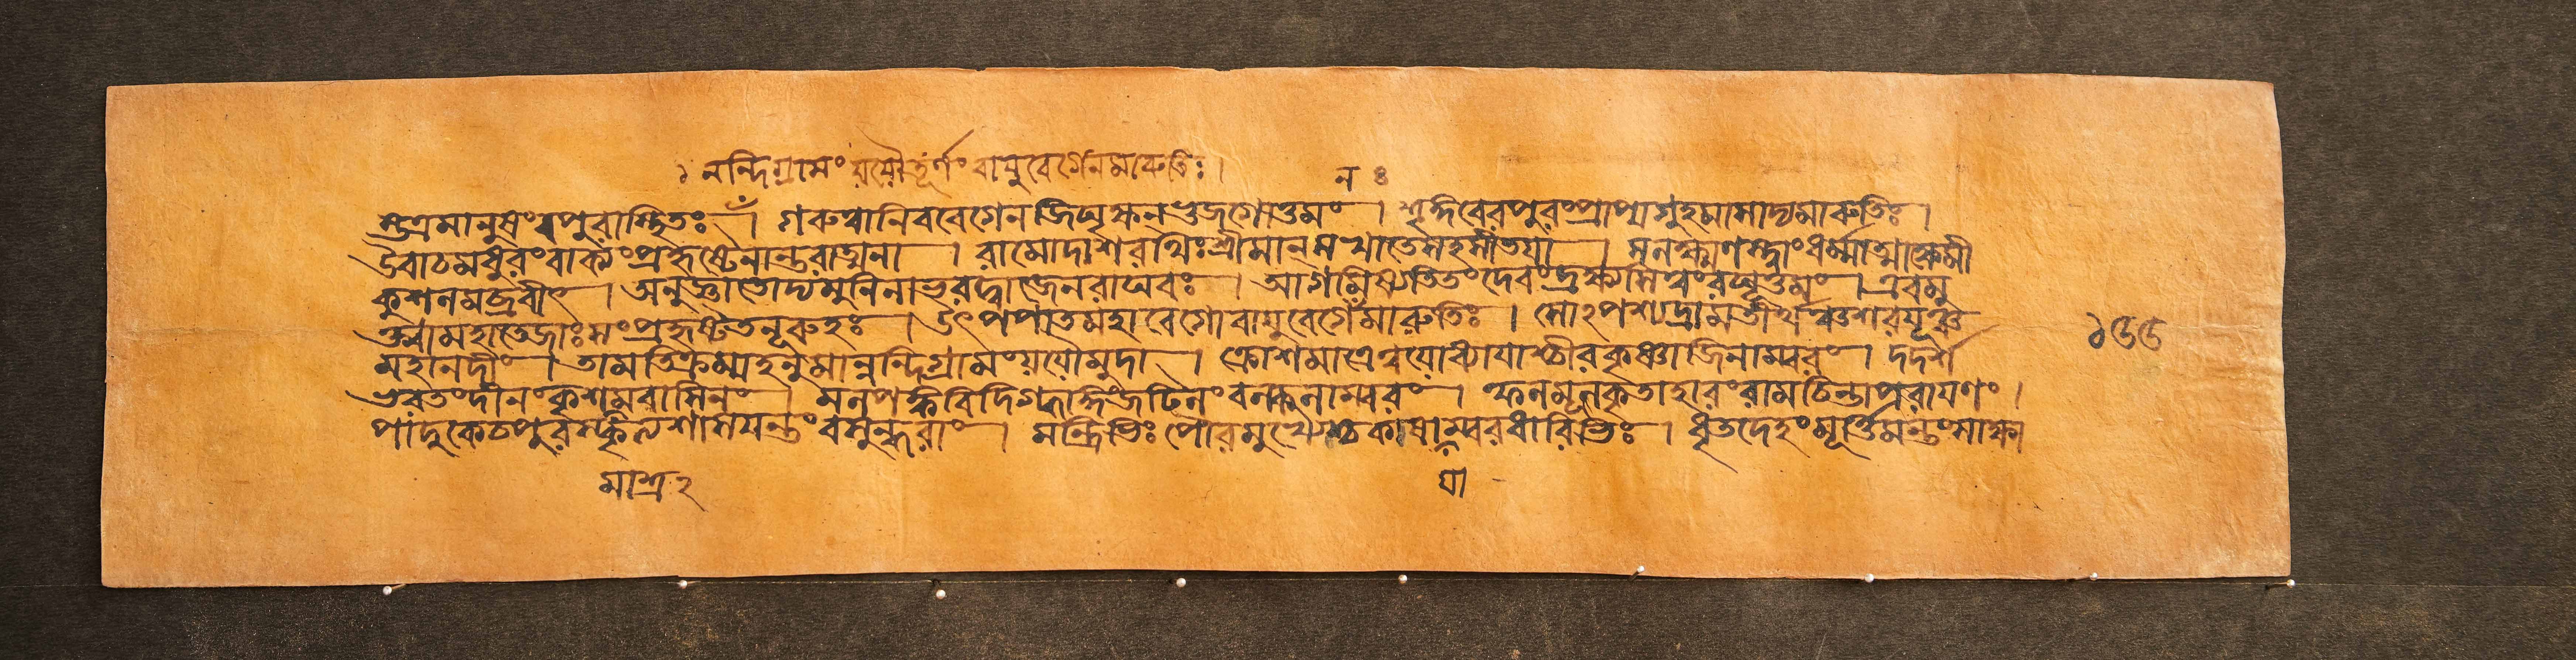 ১ নন্দিগ্রামং যযৌ তূর্ণং বায়ুবেগেন মারুতিঃ।
ন ৪
গরুত্মানিব বেগেন জিঘৃক্ষন্ ভুজগোত্তমং । শৃঙ্গিবেরপুরং প্রাপ্য গুহমাসাদ্য মারুতিঃ।
উবাচ মধুরং বাক্যং প্রহৃষ্টেনান্তরাত্মনা । রামো দাশরথিঃ শ্রীমান্ সখা তে সহ সীতয়া । সলক্ষ্মণস্ত্বাং ধর্ম্মাত্মা ক্ষেমী
কুশলমব্রবীৎ । অনুজ্ঞাতোদ্য মুনিনা ভরদ্বাজেন রাঘবঃ । আগমিষ্যতি তং দেবং দ্রক্ষ্যসি ত্বং রঘূত্তমং । এবমু
ক্ত্বা মহাতেজাঃ সংপ্রহৃষ্টতনূরুহঃ । উৎপপাত মহাবেগো বায়ুবেগেঁ মারুতিঃ । সোঽপশ্যদ্রামতীর্থঞ্চ শরযূঞ্চ
১৫৫
মহানদীং । তামতিক্রম্য হনুমান্নন্দিগ্রামং যযৌ মুদা । ক্রোশমাত্রে ত্বযোধ্যাযাশ্চীরকৃষ্ণাজিনাম্বরং । দদর্শ
ভরতং দীনং কৃশমবাসিনং । মলপঙ্কবিদিগ্ধাঙ্গং জটিলং বল্কলাম্বরং । ফলমূলকৃতাহারং রামচিন্তাপরাযণং ।
পাদুকে চ পুরস্কৃত্য শাসযন্তং বসুন্ধরাং । মন্ত্রিভিঃ পৌরমুখ্যৈশ্চ কাষাম্বরধারিভিঃ । ধৃতদেহং মূর্ত্তিমন্তং সাক্ষা
মাশ্র ২
যা